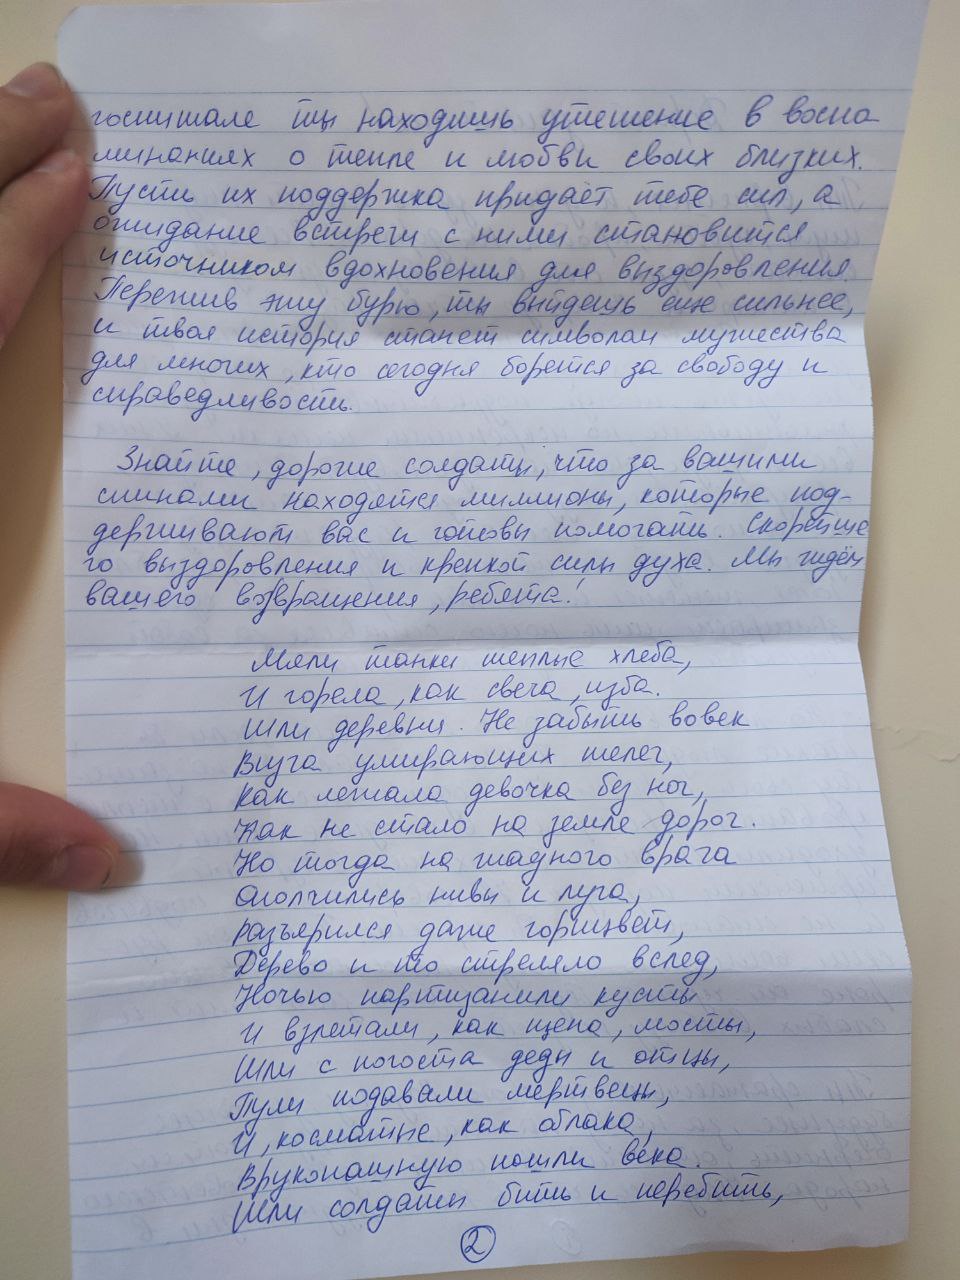 госпитале ты находишь утешение в воспо
минаниях о тепле и любви своих близких.
Пусть их поддержка придаёт тебе сил, а
ожидание встречи с ними становится
источником вдохновения для выздоровления.
Пережив эту бурю, ты выйдешь еще сильнее,
и твоя история станет символом мужества
для многих, кто сегодня борется за свободу и
справедливость.
Знайте, дорогие солдаты, что за вашими
спинами находятся миллионы, которые под-
держивают вас и готовы помогать. Скорейше
го выздоровления и крепкой силы духа. Мы ждём
вашего возвращения, ребята!
Мяли танки теплые хлеба,
И горела, как свеча, изба.
Шли деревни. Не забыть вовек
Визга умирающих телег,
Как лежала девочка без ног,
Как не стало на земле дорог.
Но тогда на жадного врага
Ополчились нивы и луга,
Разъярился даже горицвет,
Дерево и то стреляло вслед,
Ночью партизанили кусты
И взлетали, как щепа, мосты,
Шли с погоста деды и отцы,
Пули подавали мертвецы,
И, косматые, как облака,
Врукопашную пошли века.
Шли солдаты бить и перебить,
2